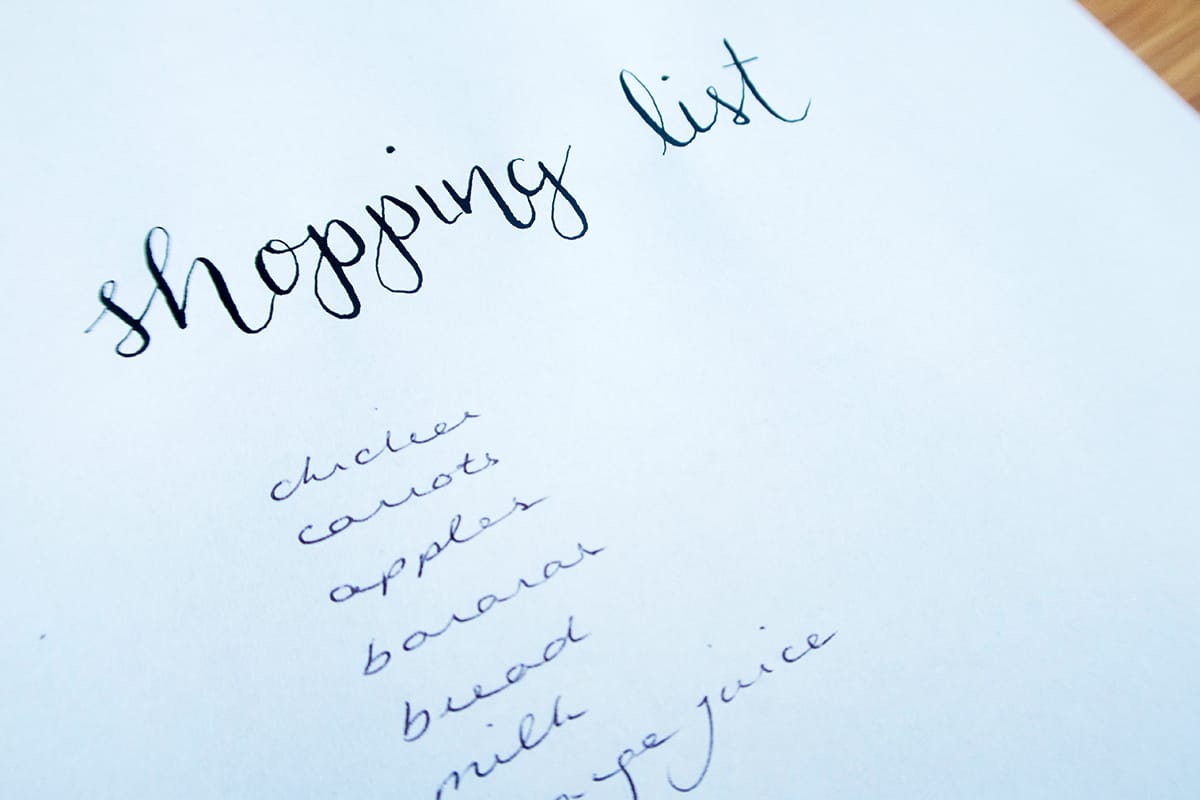 shopping list
chicken
carrots
apples
bananas
bread
milk
juice